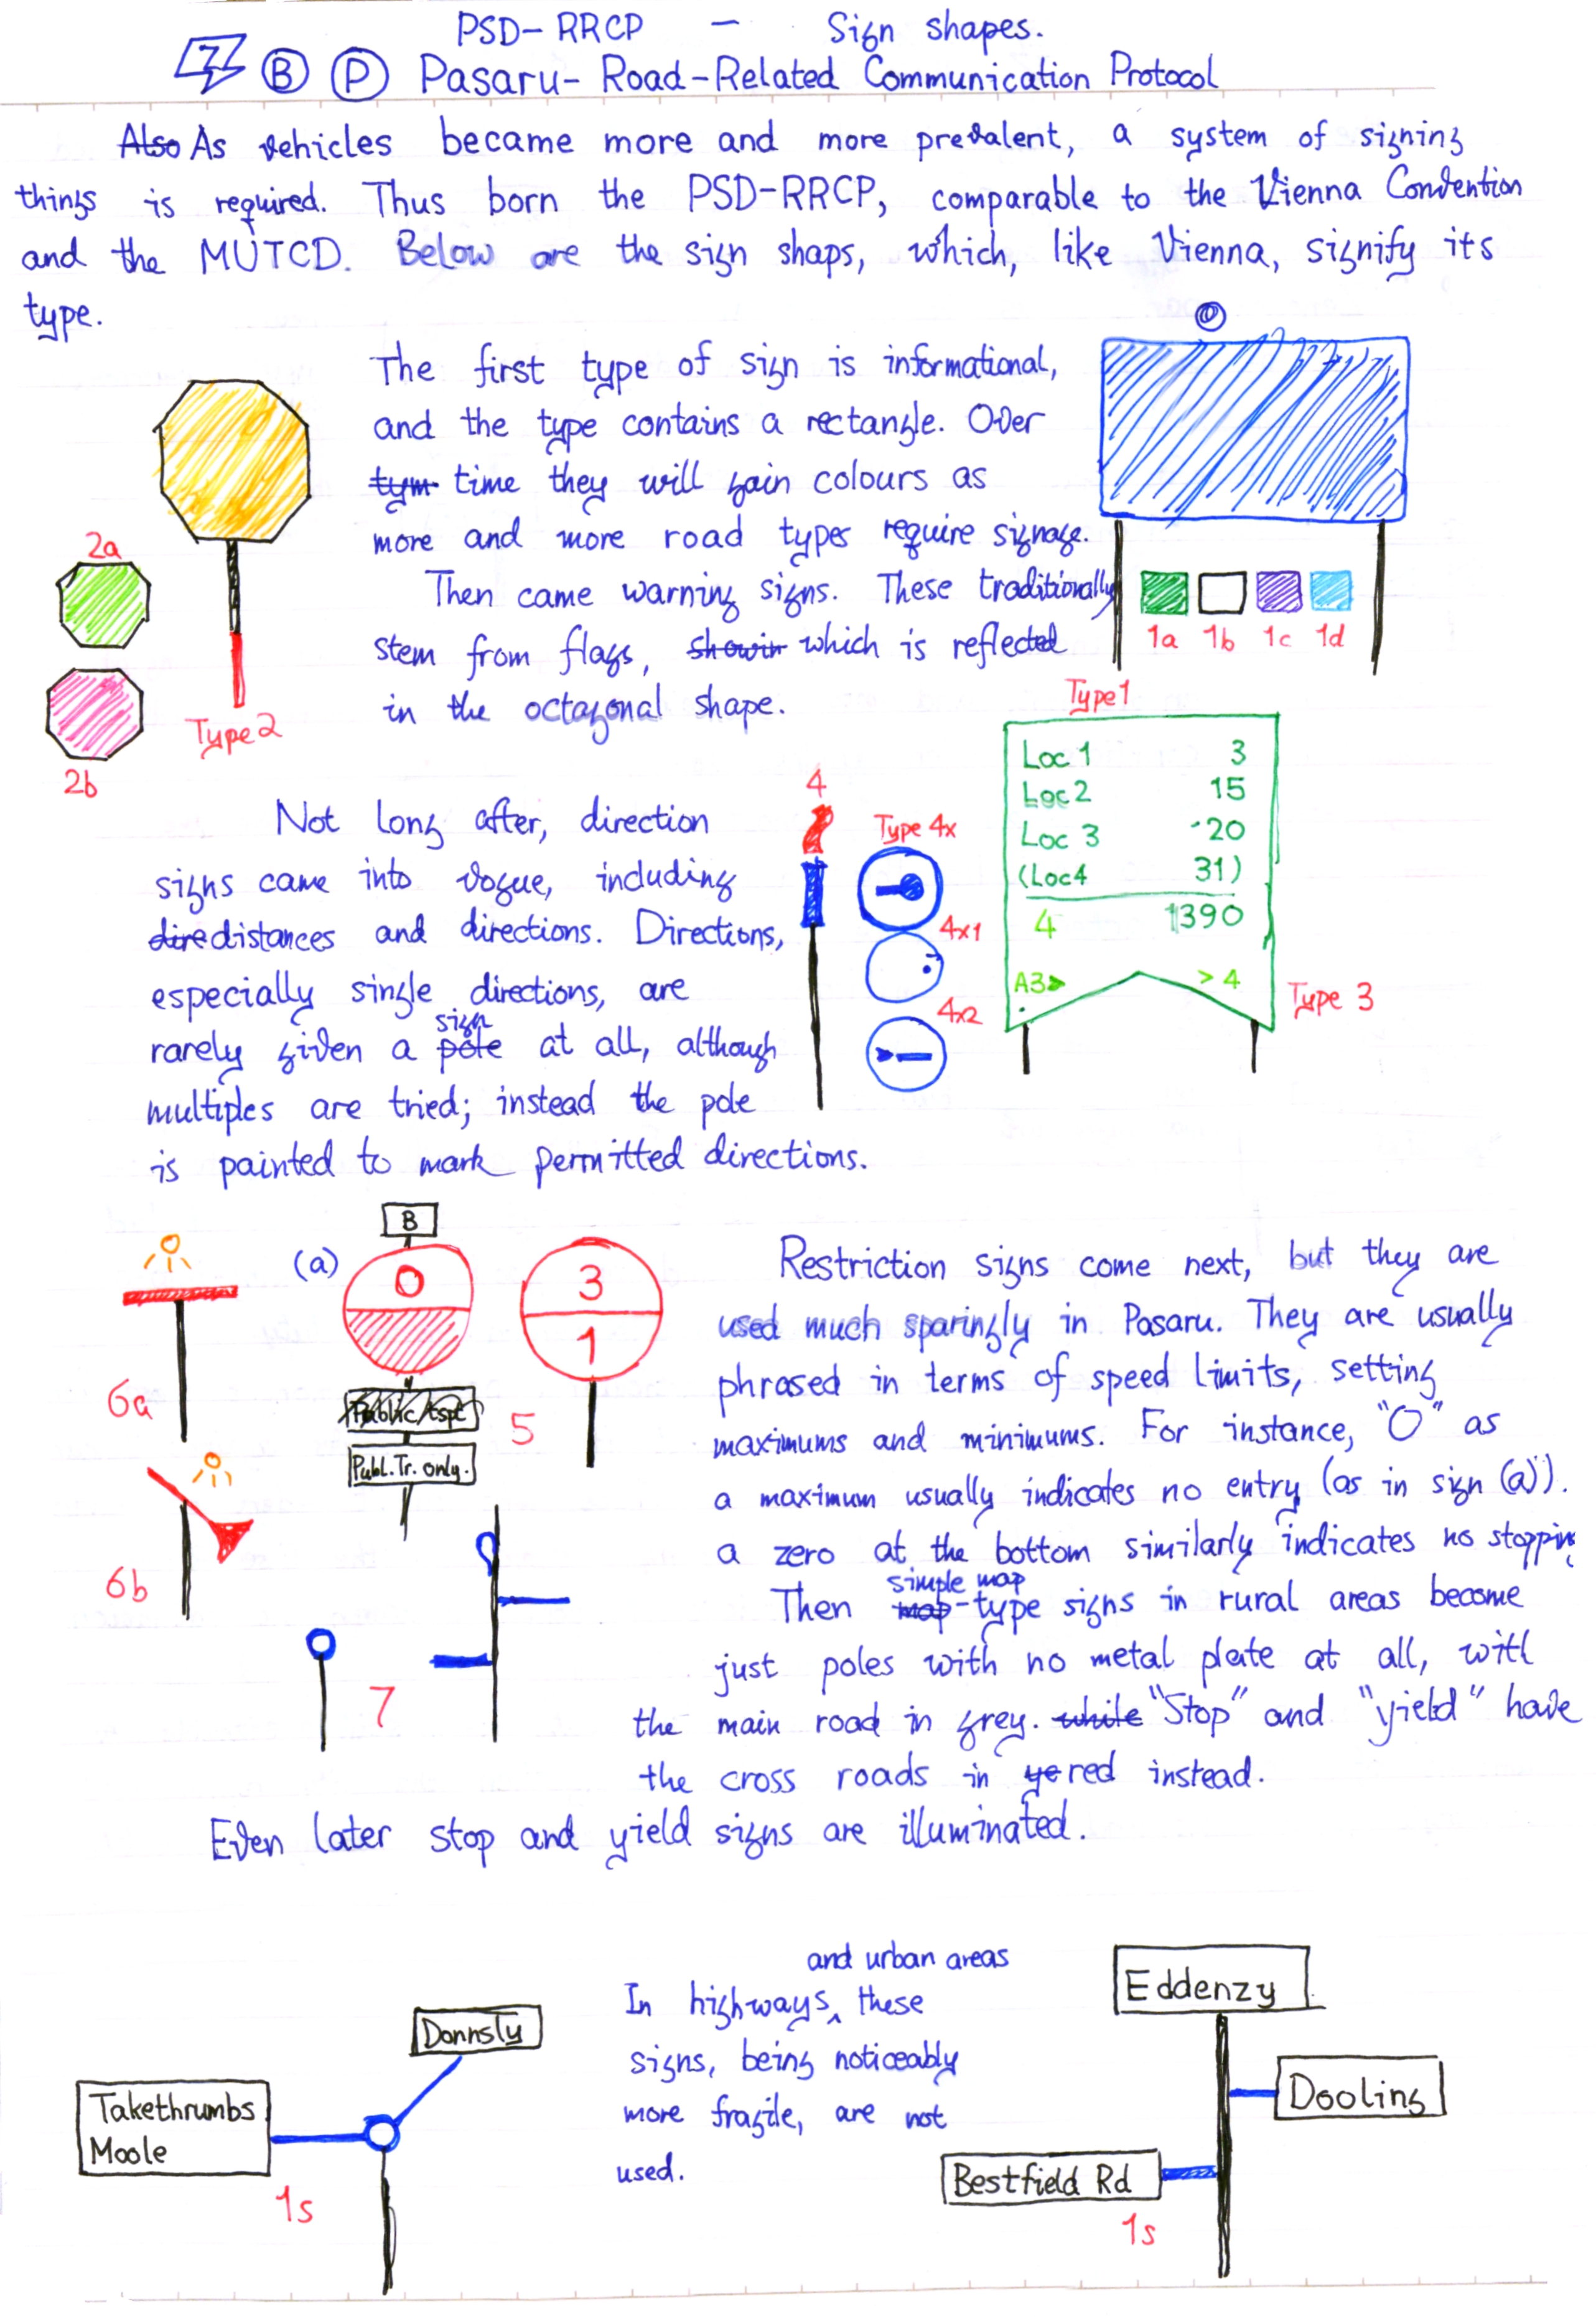 PSD-RRCP - Sign shapes.
B P Pasaru-Road-Related Communication Protocol
Also As vehicles became more and more prevalent, a system of signing
things is required. Thus born the PSD-RRCP, comparable to the Vienna Convention
and the MUTCD. Below are the sign shaps, which, like Vienna, signify its
type.
The first type of sign is informational,
and the type contains a rectangle. Over
tym time they will gain colours as
more and more road types require signage.
Then came warning signs. These traditionally
stem from flags, showin which is reflected
in the octagonal shape.
2a
2b
Type 2
1a 1b 1c 1d
Type 1
Not long after, direction
signs came into vogue, including
dire distances and directions. Directions,
especially single directions, are
sign
rarely given a pole at all, although
multiples are tried; instead the pole
is painted to mark permitted directions.
4
Type 4x
4x1
4x2
Loc 1 3
Loc 2 15
Loc 3 20
(Loc4 31)
4 1390
A3> > 4
Type 3
6a
6b
(a)
B
0
Public tspt
Publ. Tr. only.
3
1
5
7
Restriction signs come next, but they are
used much sparingly in Pasaru. They are usually
phrased in terms of speed limits, setting
maximums and minimums. For instance, "0" as
a maximum usually indicates no entry (as in sign (a)).
a zero at the bottom similarly indicates no stopping
simple map
Then map-type signs in rural areas become
just poles with no metal plate at all, with
the main road in grey. while "Stop" and "yield" have
the cross roads in ye red instead.
Even later stop and yield signs are illuminated.
Donnsly
Takethrumbs
Moole
1s
and urban areas
In highways ‸ these
signs, being noticeably
more fragile, are not
used.
Eddenzy
Dooling
Bestfield Rd
1s